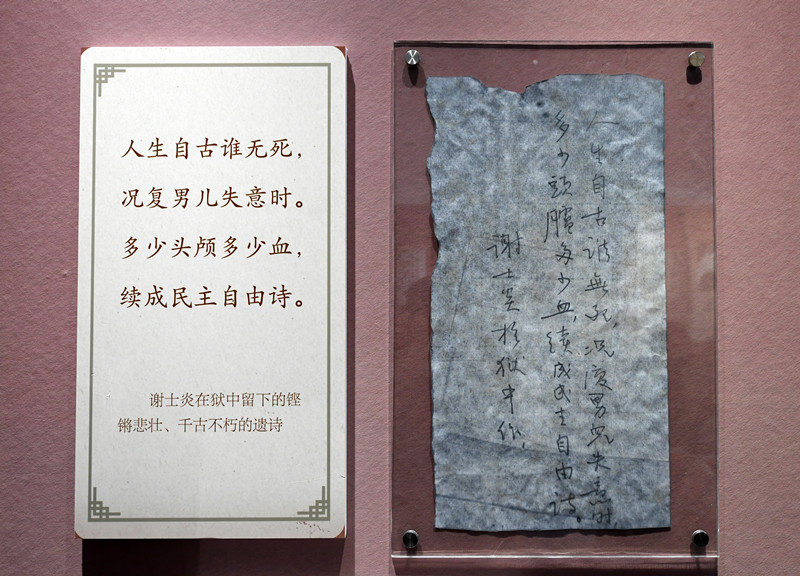 人生自古谁无死，
况复男儿失意时。
多少头颅多少血，
续成民主自由诗。
谢士炎在狱中留下的铿
锵悲壮、千古不朽的遗诗
人生自古谁無死，况复男兒失意时，
多少頭臚多少血，续成民主自由诗。
谢士炎於狱中作，